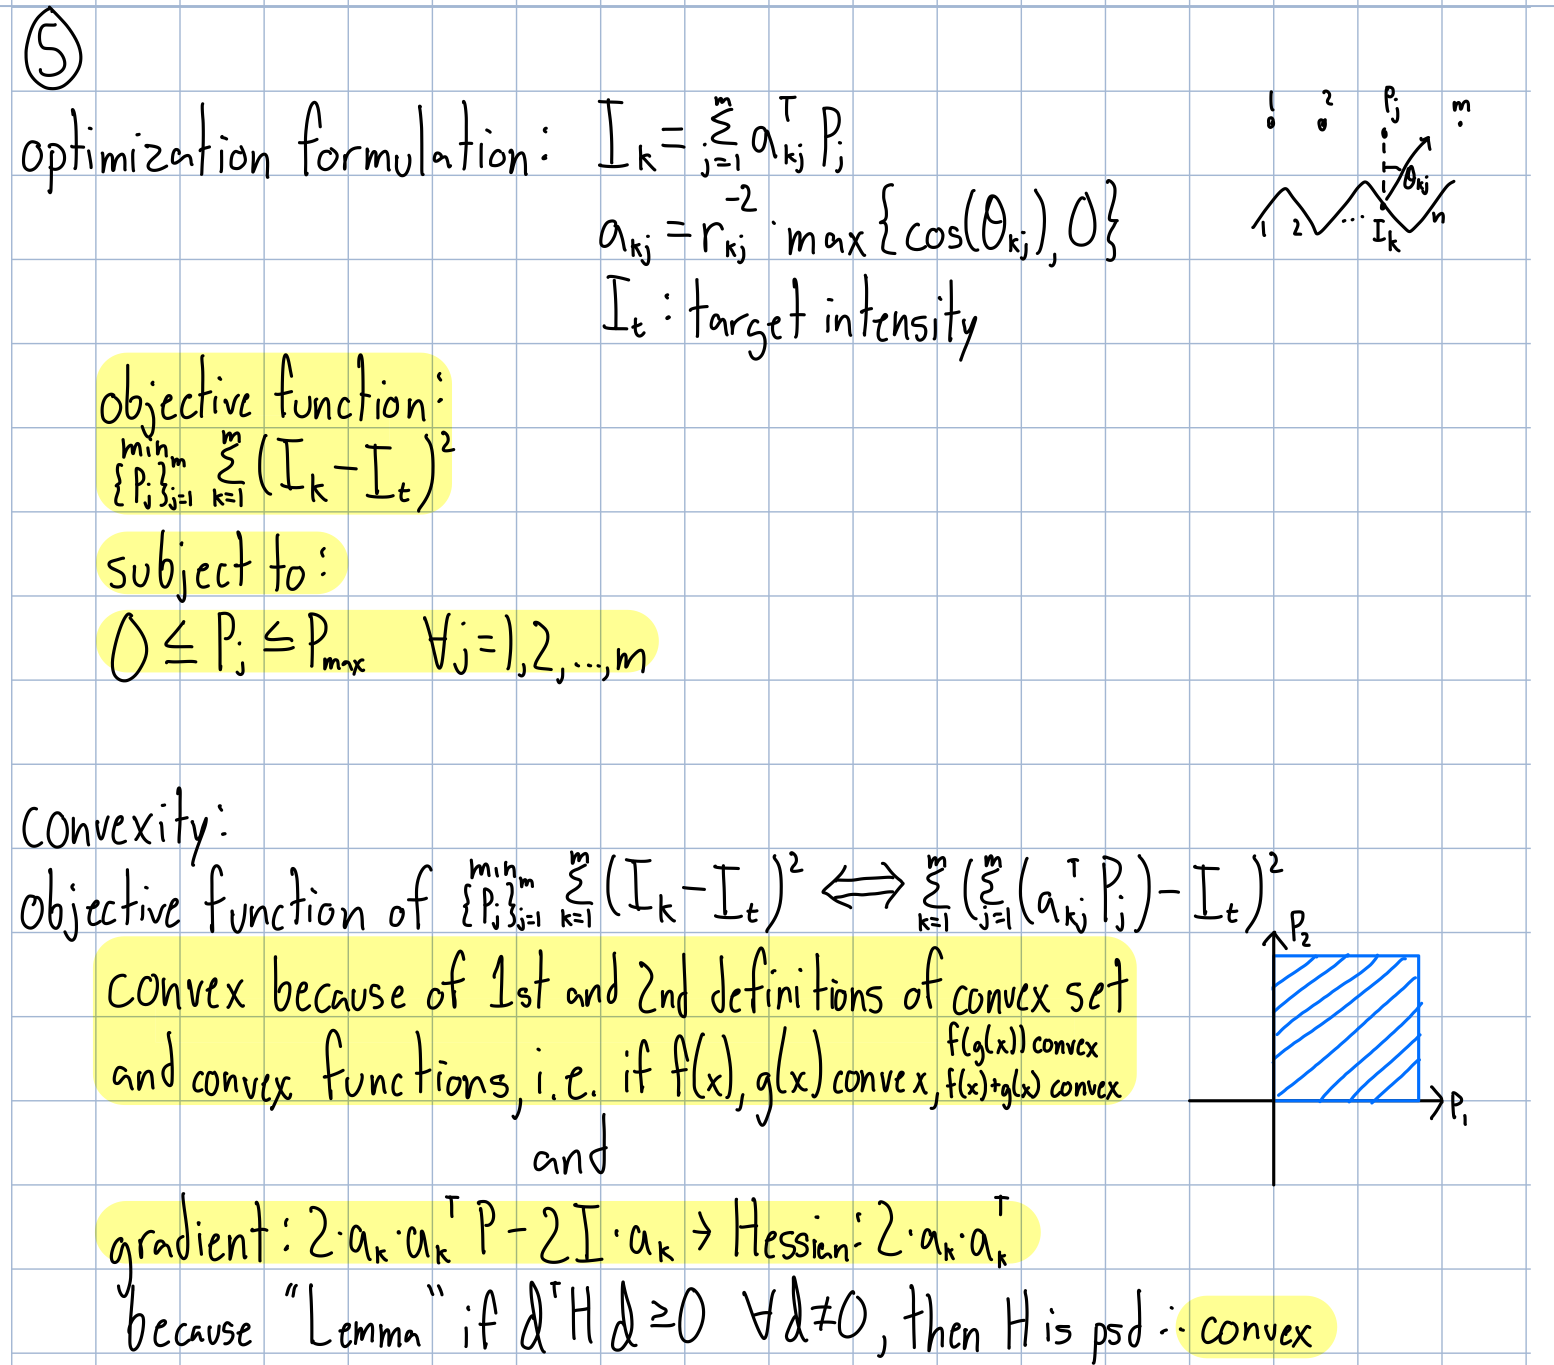 ⑤
1 2 Pⱼ m
optimization formulation: Iₖ = Σⱼ₌₁ᵐ aₖⱼᵀ Pⱼ
θₖⱼ
1 2 ... Iₖ n
aₖⱼ = rₖⱼ⁻² · max{cos(θₖⱼ), 0}
Iₜ : target intensity
objective function:
min_{{Pⱼ}ⱼ₌₁ᵐ} Σₖ₌₁ᵐ (Iₖ - Iₜ)²
subject to:
0 ≤ Pⱼ ≤ Pₘₐₓ ∀j=1,2,...,m
convexity:
objective function of min_{{Pⱼ}ⱼ₌₁ᵐ} Σₖ₌₁ᵐ (Iₖ - Iₜ)² ⟺ Σₖ₌₁ᵐ (Σⱼ₌₁ᵐ (aₖⱼᵀ Pⱼ) - Iₜ)²
P₂
convex because of 1st and 2nd definitions of convex set
and convex functions, i.e. if f(x), g(x) convex, f(g(x)) convex
f(x)+g(x) convex
P₁
and
gradient: 2·aₖ·aₖᵀ P - 2I·aₖ → Hessian: 2·aₖ·aₖᵀ
because "Lemma" if dᵀHd ≥ 0 ∀d≠0, then H is psd ∴ convex